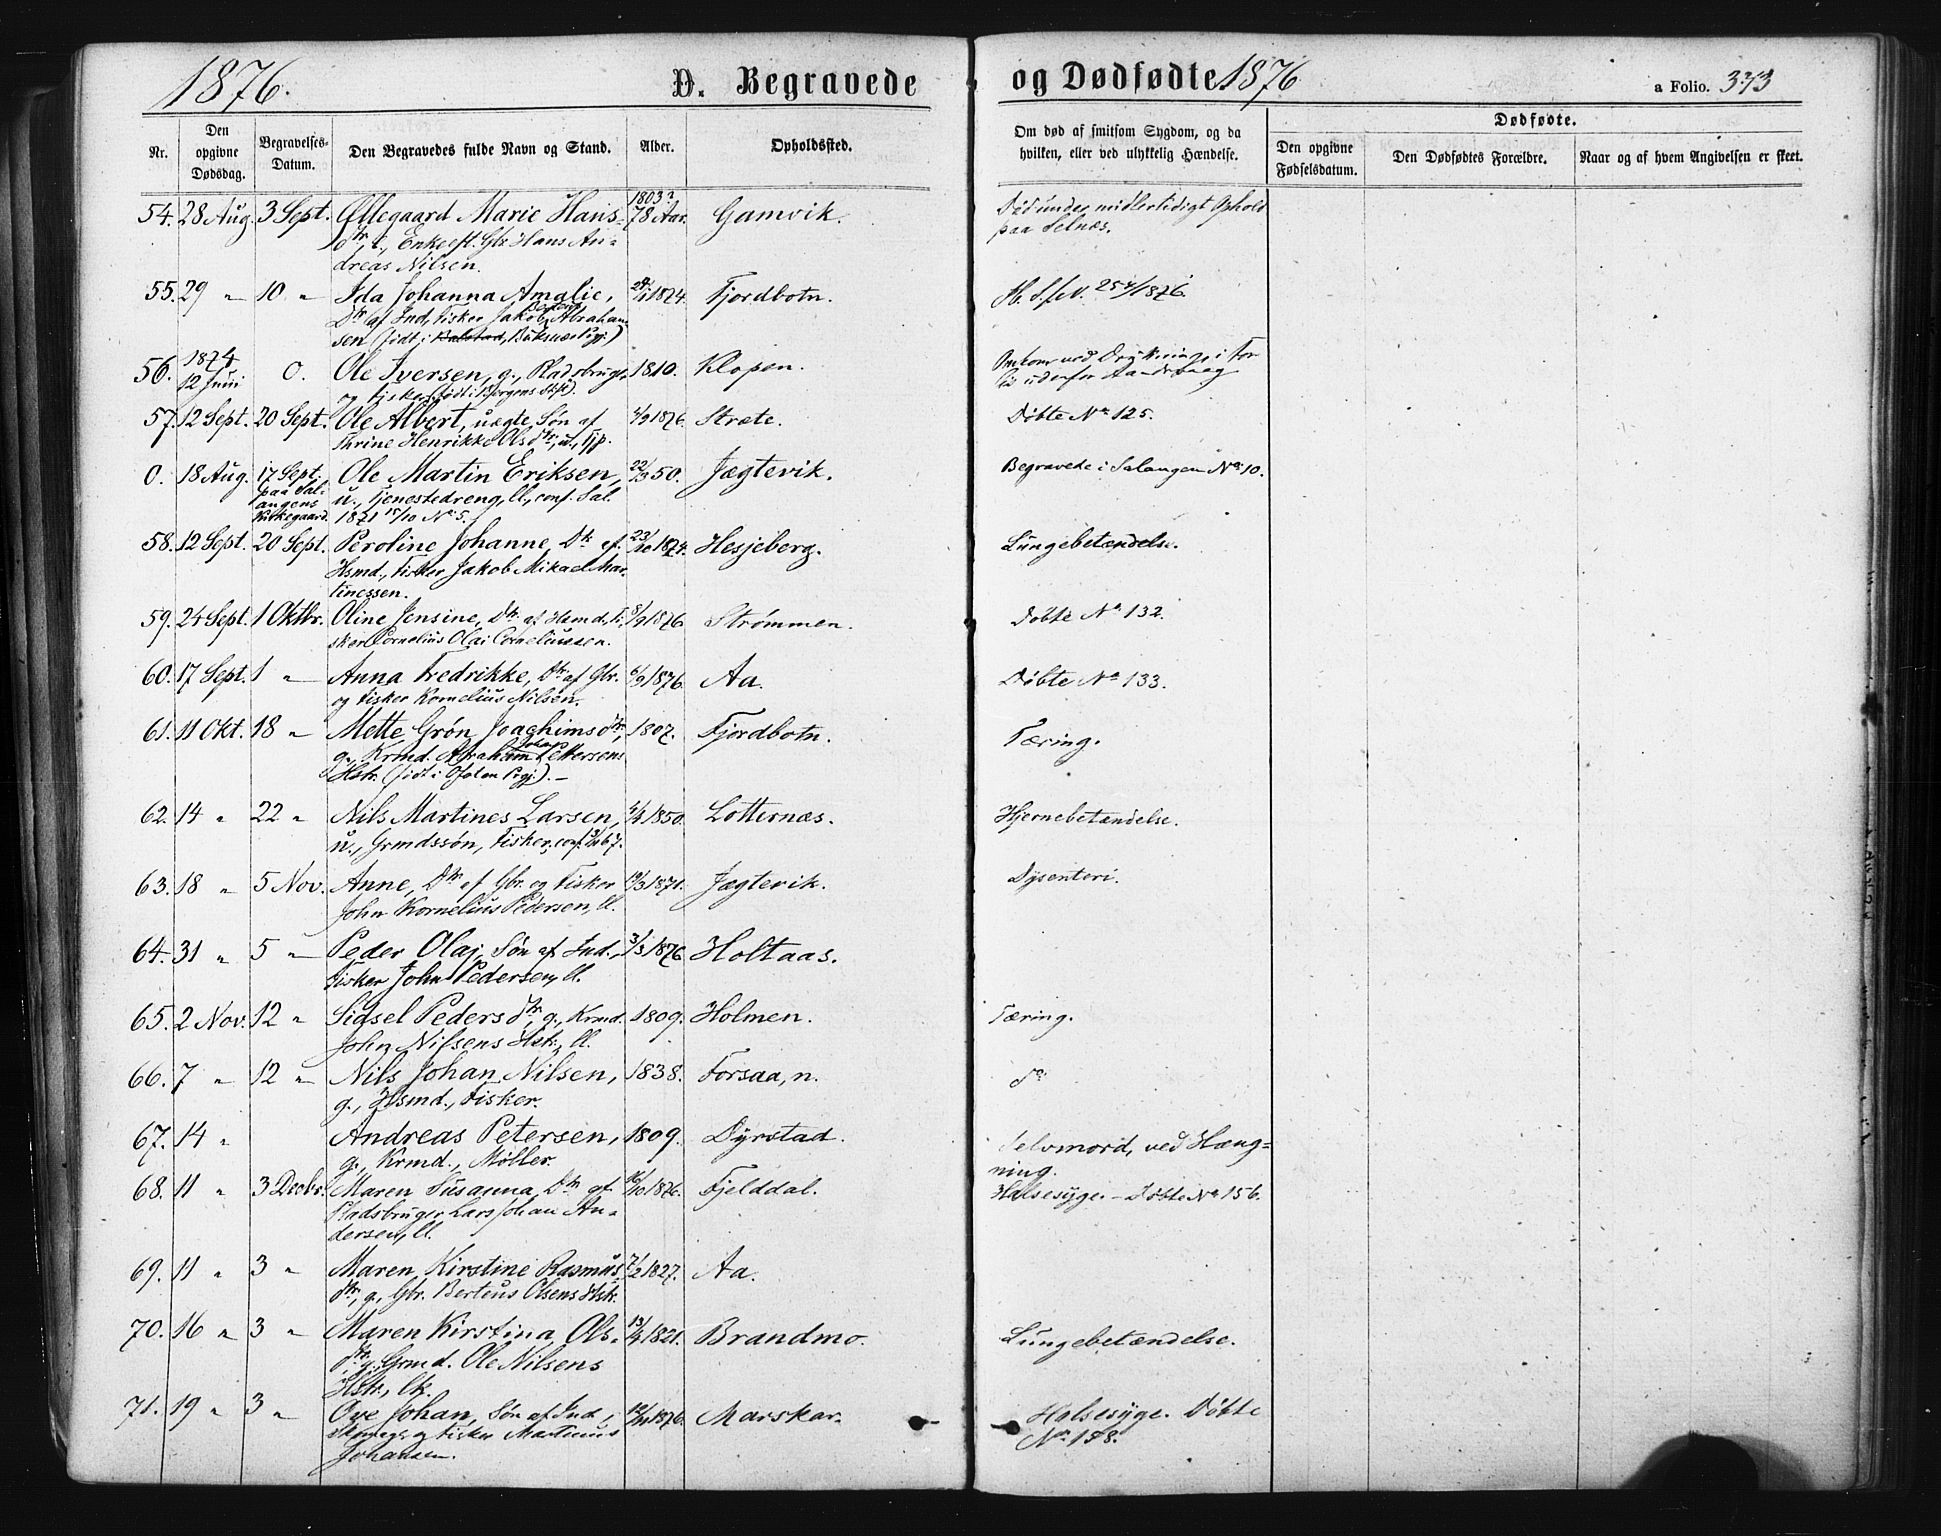 1876.
D. Begravede
og Dødfødte 1876
a Folio. 373
Nr.
Den opgivne Dødsdag.
Begravelses-Datum.
Den Begravedes fulde Navn og Stand.
Alder.
Opholdssted.
Om død af smitsom Sygdom, og da hvilken, eller ved ulykkelig Hændelse.
Dødfødte.
Den opgivne Fødselsdatum.
Den Dødfødtes Forældre.
Naar og af hvem Angivelsen er skeet.
1803?
54. 28 Aug. 3 Sept. Ollegaard Marie Hans- 78 Aar. Gamvik. Død under midlertidigt Ophold
dtr, Enkeeft. Gbr Hans An- paa Selnæs.
dreas Nilsen.
55. 29 " 10 " Ida Johanna Amalie, 1874. Fjordbotn.
Dtr af Ind., Fisker Jakob Abraham-
sen (født i Balstad, Buksnæs Pgj.)
1874
56. 12 Juni 0. Ole Iversen, g., Pladsbruger 1810. Klopen. Omkom ved Drukning i For
og Fisker (født i Bergens Stift). lis udenfor
57. 12 Sept. 20 Sept. Ole Albert, uægte Søn af /9 1876. Stræte. Døbte No 125.
Thrine Henrikke Olsdtr, u., Tjp.
0. 18 Aug. 17 Sept. Ole Martin Eriksen, 22/3 50. Jægtevik. Begravede i Salangen No 10.
paa Sal- u., Tjenestedreng, ll., conf. Sal.
angens 1871 15/10 No 5.
Kirkegaard.
58. 12 Sept. 20 Sept. Peroline Johanne, Dtr af 23/10 1874. Hesjeberg. Lungebetændelse.
Hsmd., Fisker Jakob Mikael Mar-
tinessen.
59. 24 Sept. 1 Oktbr. Oline Jensine, Dtr af Hsmd., Fi- 8/9 1876. Strømmen. Døbte No 132.
sker Cornelius Olai Corneliussen.
60. 17 Sept. 1 " Anna Fredrikke, Dtr af Gbr. 6/9 1876. Aa. Døbte No 133.
og Fisker Kornelius Nilsen.
61. 11 Okt. 18 " Mette Grøn Joachimsdtr, 1807. Fjordbotn. Tæring.
g., Krmd. Abraham Johan Pettersens
Hstr. (født i Ofoten Pgj.). –
62. 14 " 22 " Nils Martines Larsen, 4/4 1850. Lotternæs. Hjernebetændelse.
u., Grmdssøn, Fisker, conf. 67.
63. 18 " 5 Nov. Anne, Dtr af Gbr. og Fisker 19/3 1871. Jægtevik. Dysenteri.
John Kornelius Pedersen, ll.
64. 31 " 5 " Peder Olai, Søn af Ind., 3/3 1876. Holtaas.
Fisker John Pedersen, ll.
65. 2 Nov. 12 " Sidsel Pedersdtr, g., Krmd. 1809. Holmen. Tæring.
John Nilsens Hstr., ll.
66. 7 " 12 " Nils Johan Nilsen, 1838. Forsaa, n. do
g., Hsmd., Fisker.
67. 14 " Andreas Petersen, 1809. Dyrstad. Selvmord, ved Hæng-
g., Krmd., Møller. ning.
68. 11 " 3 Decbr. Maren Susanna, Dtr af 16/10 1876. Fjelddal. Halsesyge. – Døbte No 156.
Pladsbruger Lars Johan An-
dersen, ll.
69. 11 " 3 " Maren Kirstine Rasmus- 7/2 1827. Aa.
dtr, g., Gbr. Berteus Olsens Hstr.
70. 16 " 3 " Maren Kirstina Ols- 13/4 1821. Brandmo. Lungebetændelse.
dtr, g. Grmd. Ole Nilsens
Hstr., lk.
71. 19 " 3 " Ove Johan, Søn af Ind., 1876. Marskar. Halsesyge. Døbte
og Fisker Martinus No 158.
Johansen.